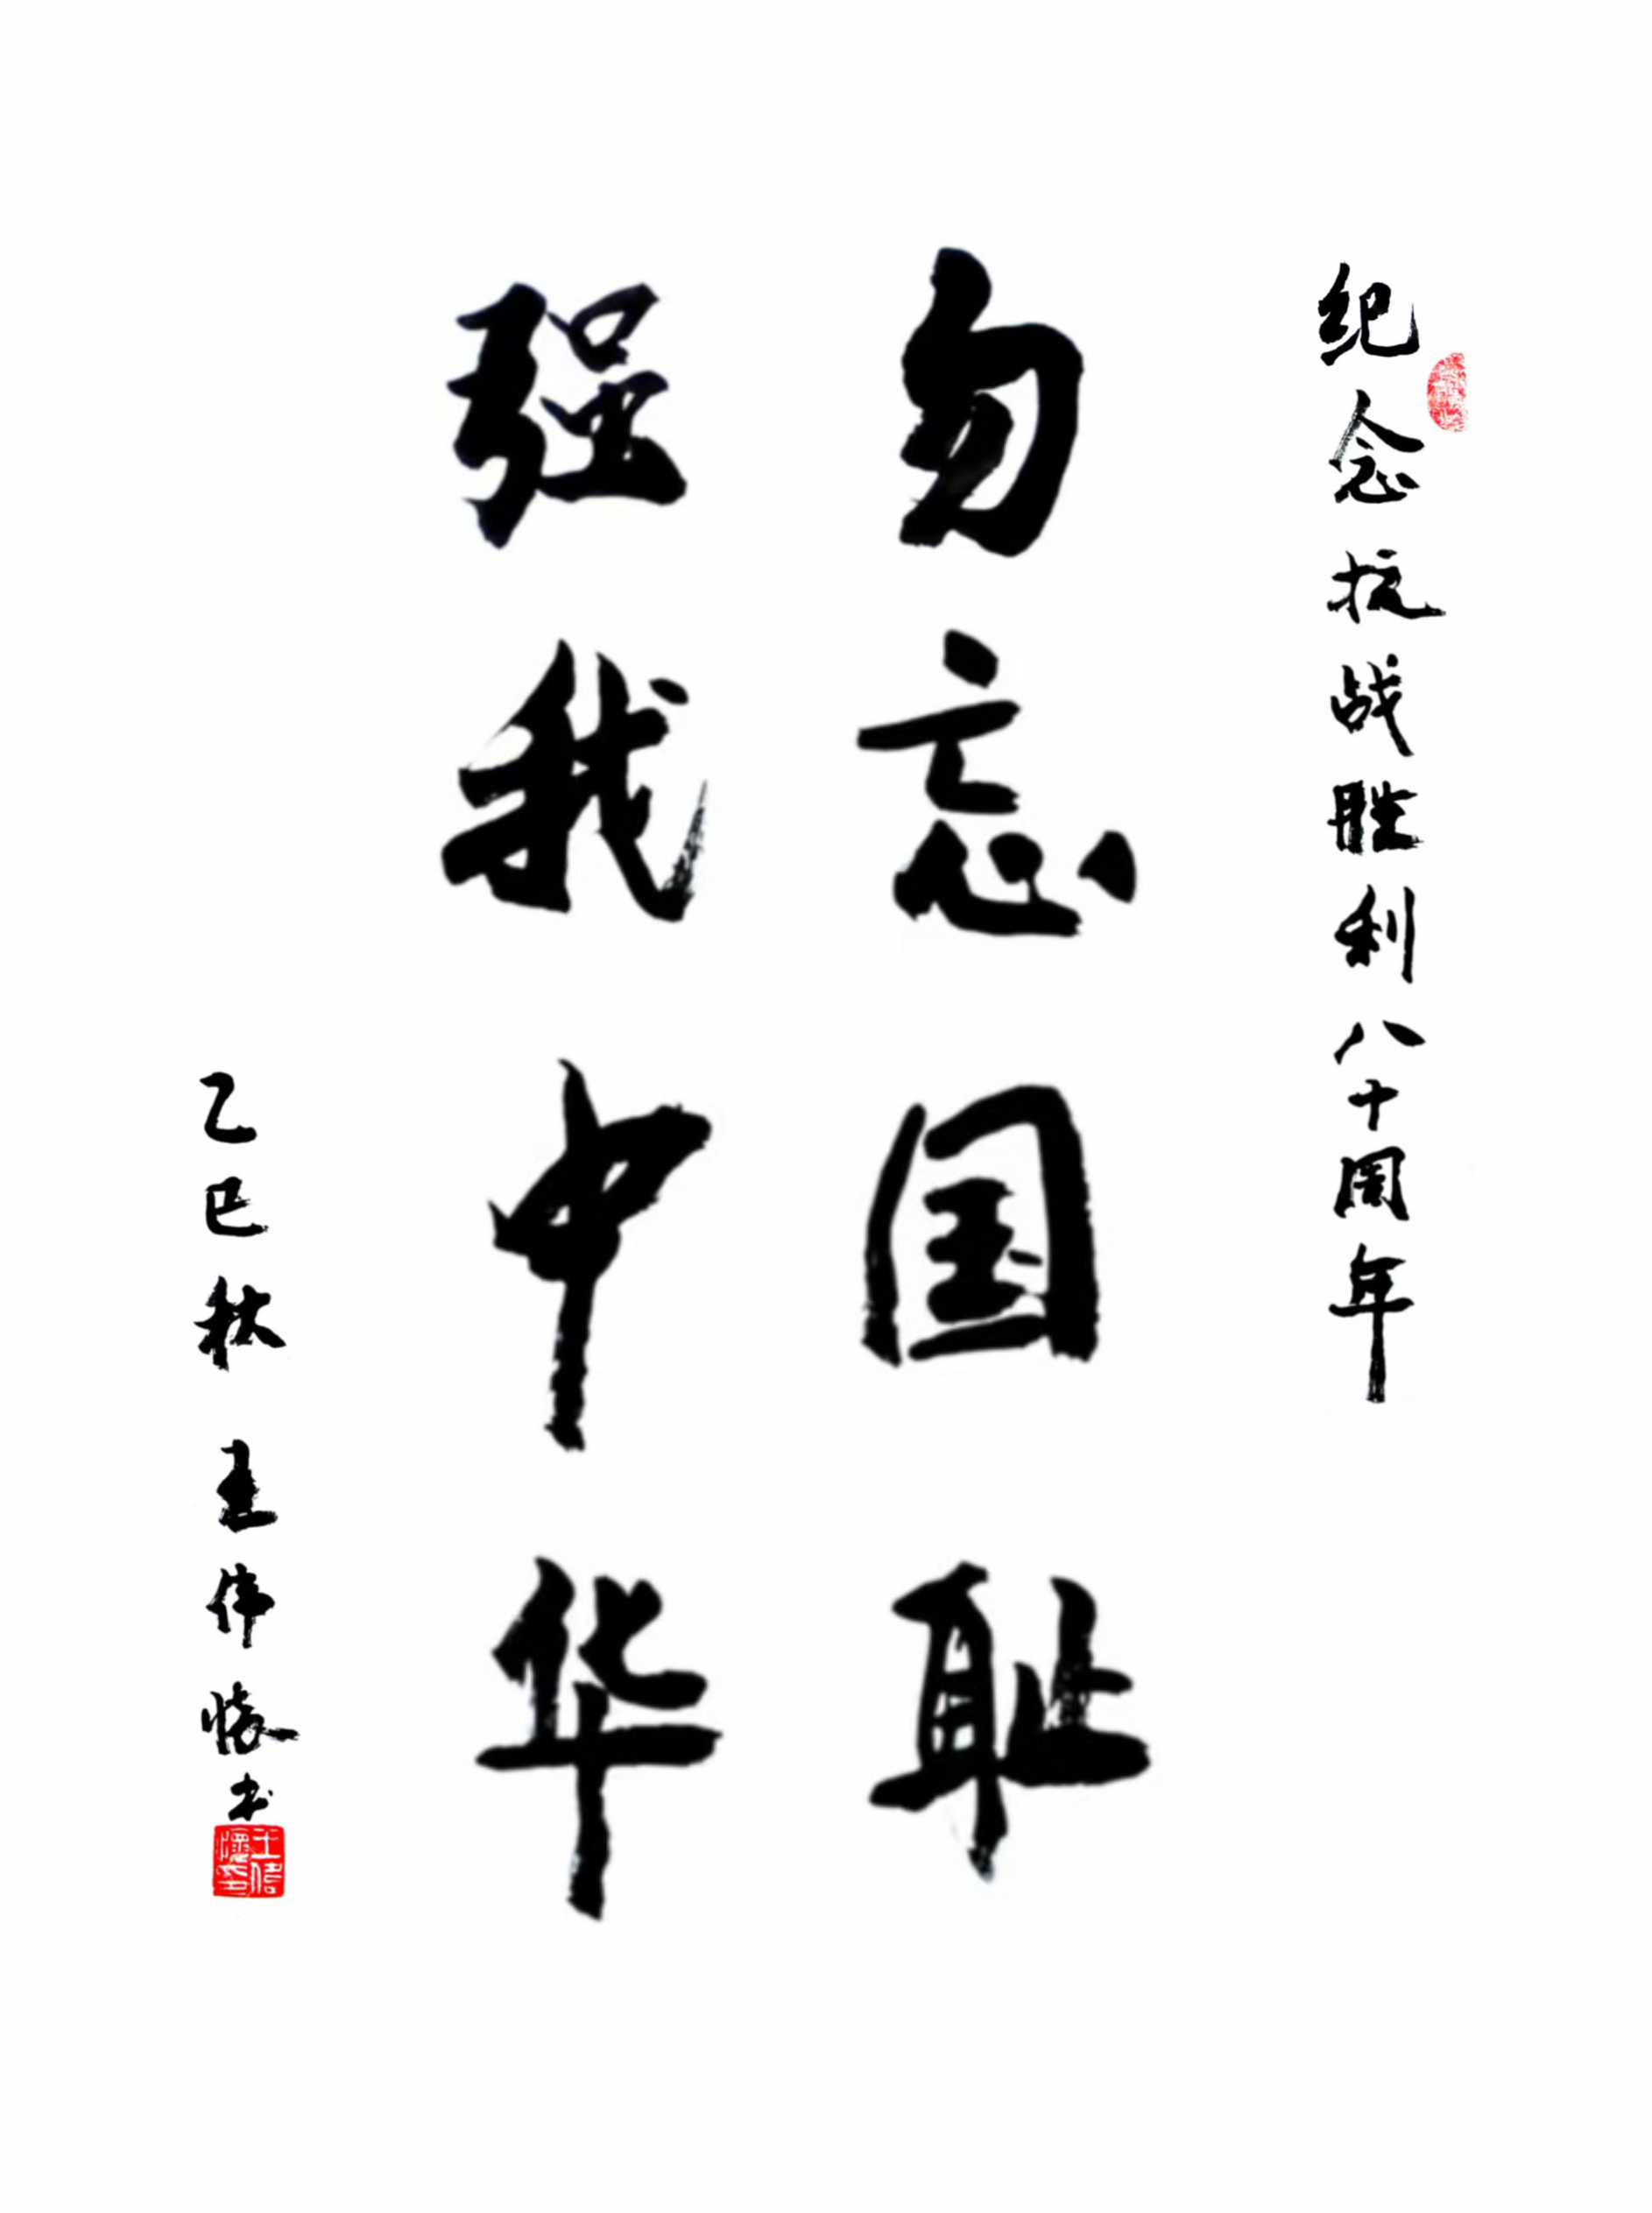 纪念抗战胜利八十周年
勿忘国耻
强我中华
乙巳秋 王伟怀书